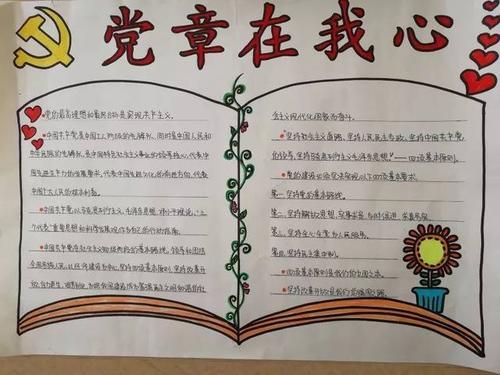 党章在我心
党的最高理想和最终目标是实现共产主义。
中国共产党是中国工人阶级的先锋队,同时是中国人民和
中华民族的先锋队,是中国特色社会主义事业的领导核心,代表中
国先进生产力的发展要求,代表中国先进文化的前进方向,代表
中国最广大人民的根本利益。
中国共产党以马克思列宁主义、毛泽东思想、邓小平理论、"三
个代表"重要思想和科学发展观作为自己的行动指南。
中国共产党在社会主义初级阶段的基本路线,领导和团结
全国各族人民,以经济建设为中心,坚持四项基本原则,坚持改革开
放,自力更生,艰苦创业,为把我国建设成为富强民主文明和谐的社
会主义现代化国家而奋斗。
坚持社会主义道路、坚持人民民主专政、坚持中国共产党
的领导、坚持马克思列宁主义毛泽东思想"——四项基本原则。
党的建设必须坚决实现以下四项基本要求。
第一、坚持党的基本路线。
第二、坚持解放思想,实事求是,与时俱进,求真务实。
第三、坚持全心全意为人民服务。
第四、坚持民主集中制。
四项基本原则是我们的立国之本。
坚持改革开放是我们的强国之路。